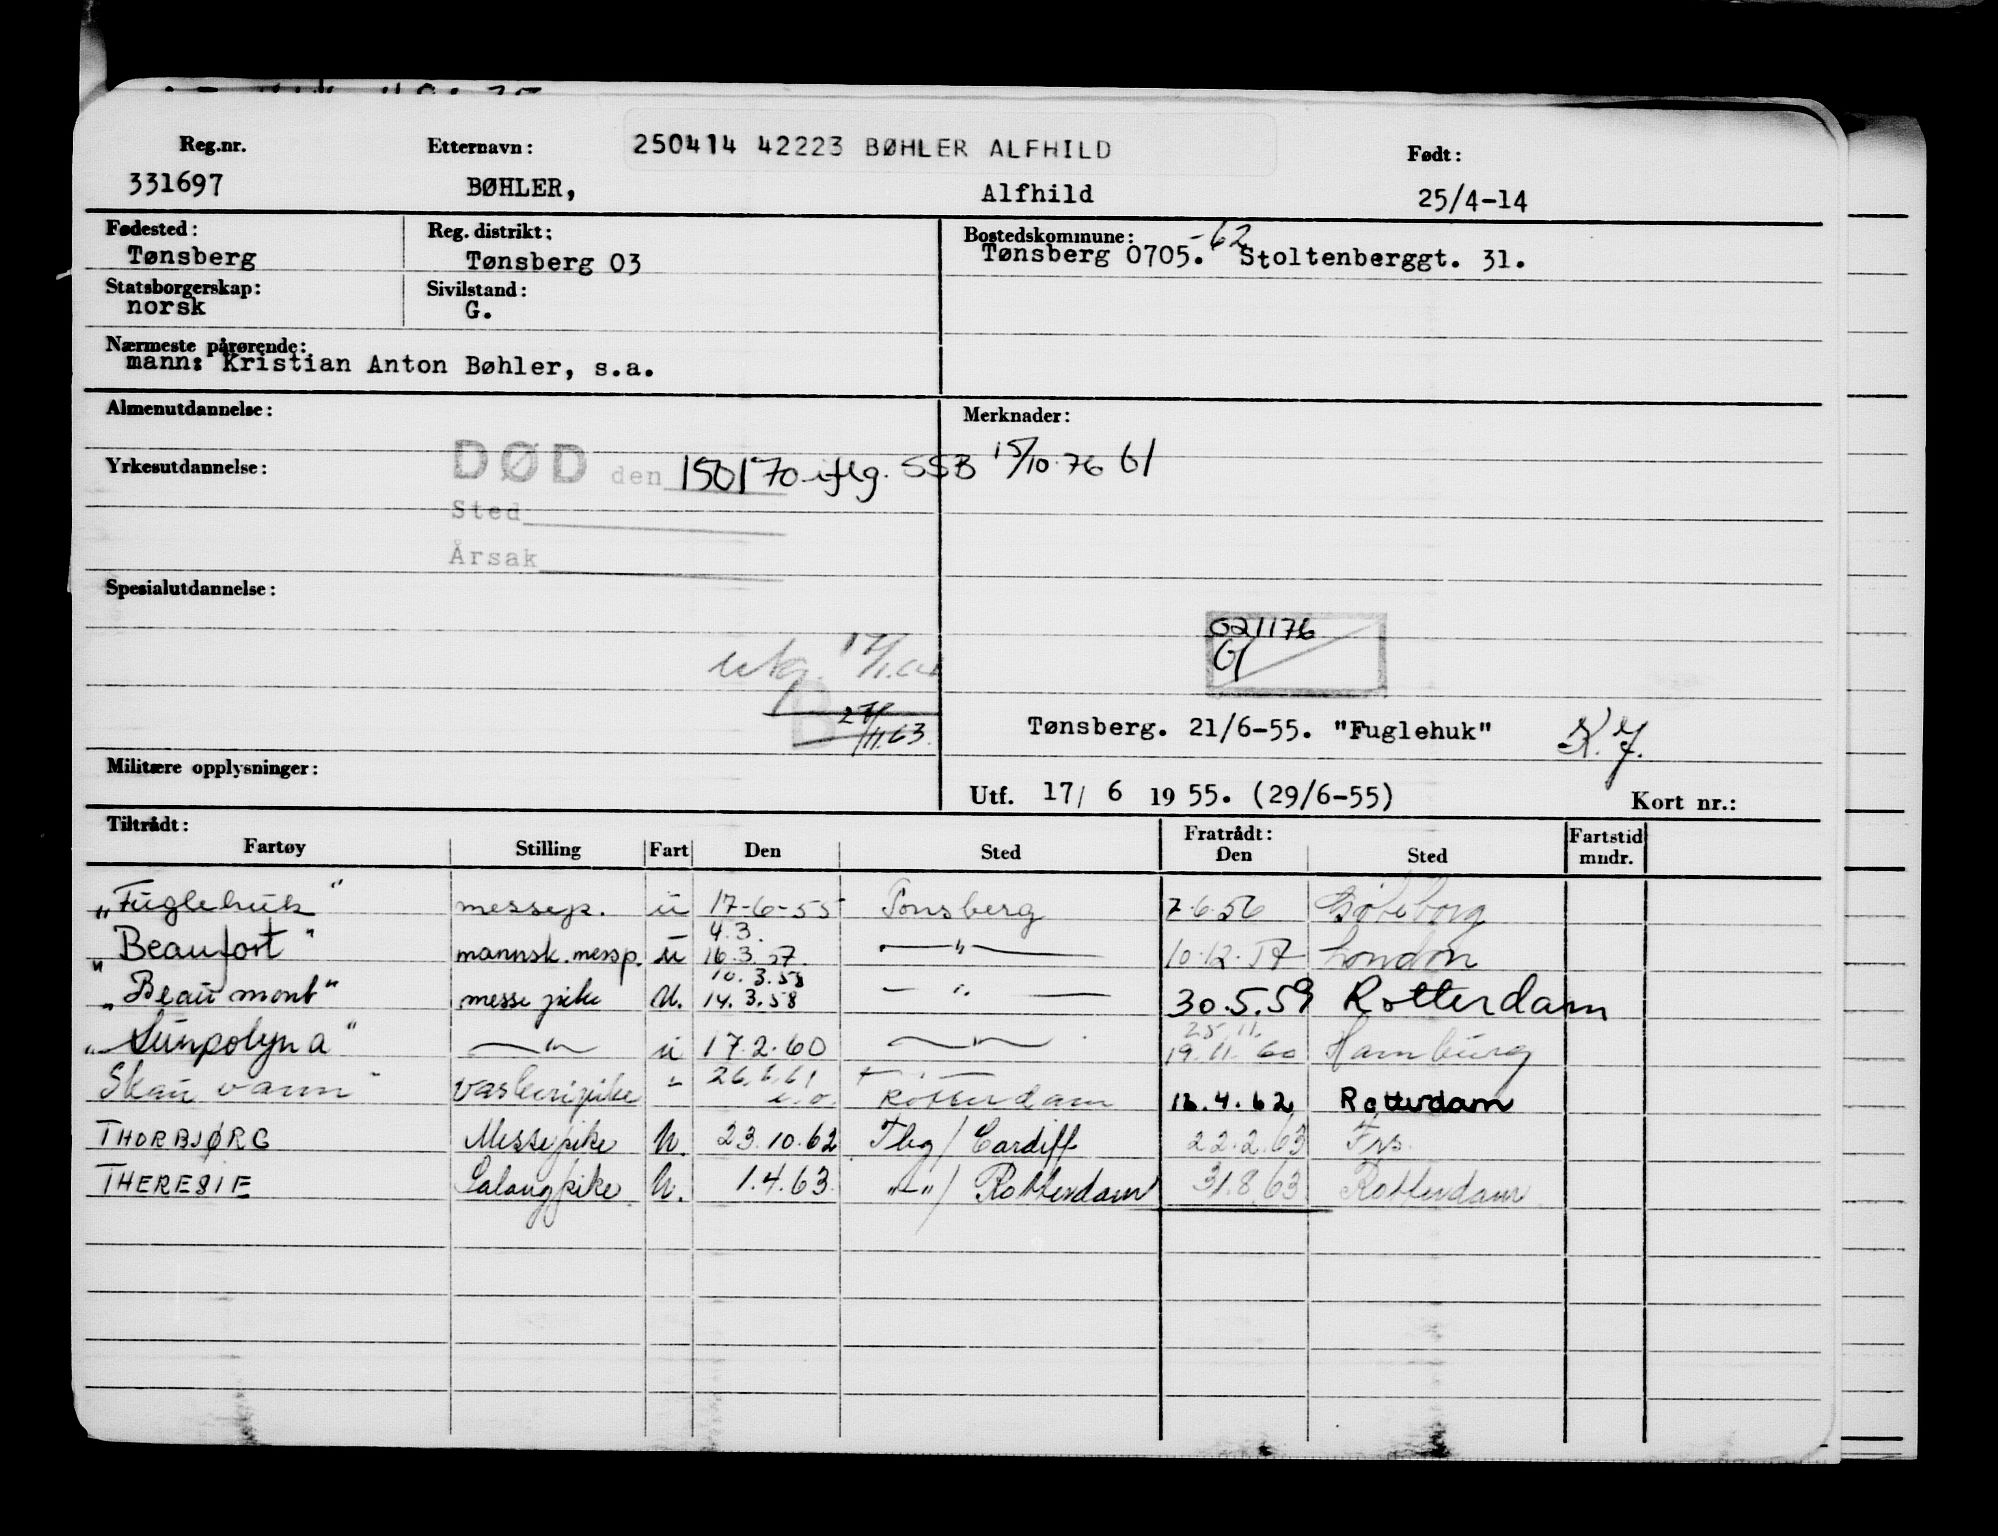 Reg.nr. Etternavn: 250414 42223 BØHLER ALFHILD Født:
331697 BØHLER, Alfhild 25/4-14
Fødested: Reg. distrikt: Bostedskommune: -62
Tønsberg Tønsberg 03 Tønsberg 0705. Stoltenberggt. 31.
Statsborgerskap: Sivilstand:
norsk G.
Nærmeste pårørende:
mann: Kristian Anton Bøhler, s.a.
Almenutdannelse: Merknader:
Yrkesutdannelse: DØD den 150170 iflg. SSB 15/10.76 GI
Sted
Årsak
Spesialutdannelse:
021176
GI
utg.
B 27/11.63.
Tønsberg. 21/6-55. "Fuglehuk" K.J.
Militære opplysninger:
Utf. 17/ 6 19 55. (29/6-55) Kort nr.:
Tiltrådt: Fratrådt: Fartstid
Fartøy Stilling Fart Den Sted Den Sted mndr.
„Fuglehuk" messep. u 17-6-55 Tønsberg 7.6.56 Gøteborg
4.3.
„Beaufort" mannsk.messp. u 16.3.57. —"— 10.12.57 London
10.3.58
„Beaumont" messepike U. 14.3.58 — " — 30.5.59 Rotterdam
25.11.
„Sunpolyna" —"— u 17.2.60 —"— 19.11.60 Hamburg
Skauvann" vaskeripike " 26.6.61 Rotterdam 12.4.62 Rotterdam
THORBJØRG Messepike U. 23.10.62 Tbg/Cardiff 22.2.63 Frs.
THERESIE Salongpike U. 1.4.63. "-"/ Rotterdam 31.8.63. Rotterdam